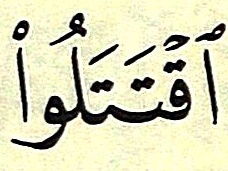 ٱقۡتَتَلُواْ